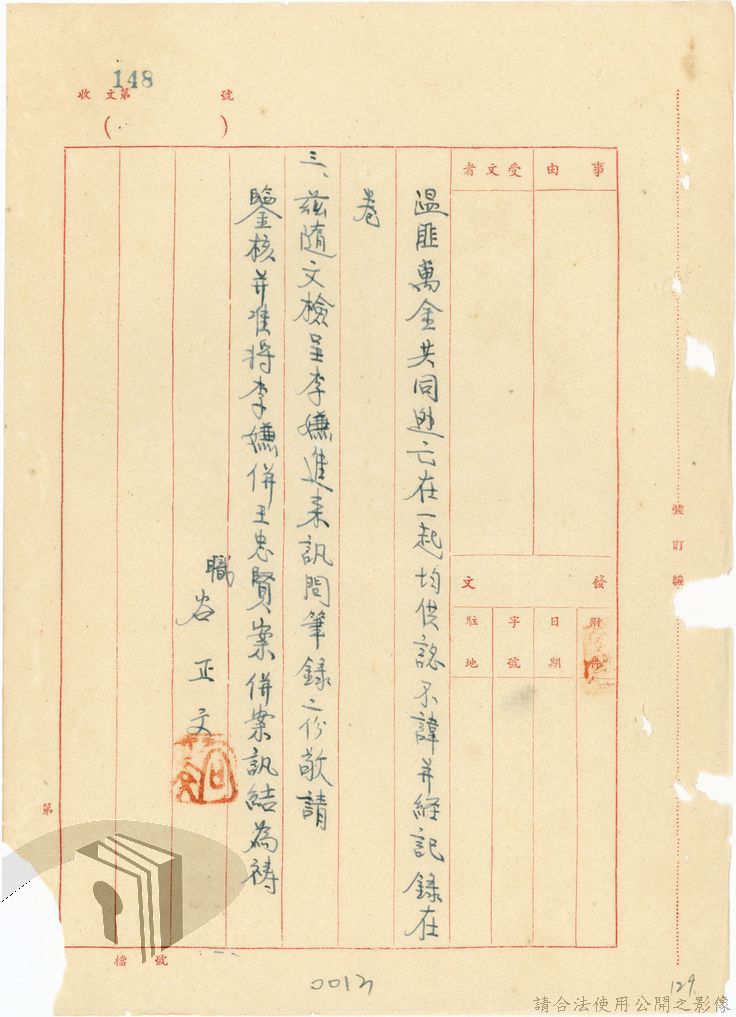 148
收文第 號
( )
事由
受文者
發文
附件
日期
字號
駐地
溫匪萬金共同逃亡在一起均供認不諱并經記錄在
卷
三、茲隨文檢呈李嫌進來訊問筆錄二份敬請
鑒核并准將李嫌併王忠賢案併案訊結為禱
職
谷正文
裝訂線
第
檔號
129
請合法使用公開之影像